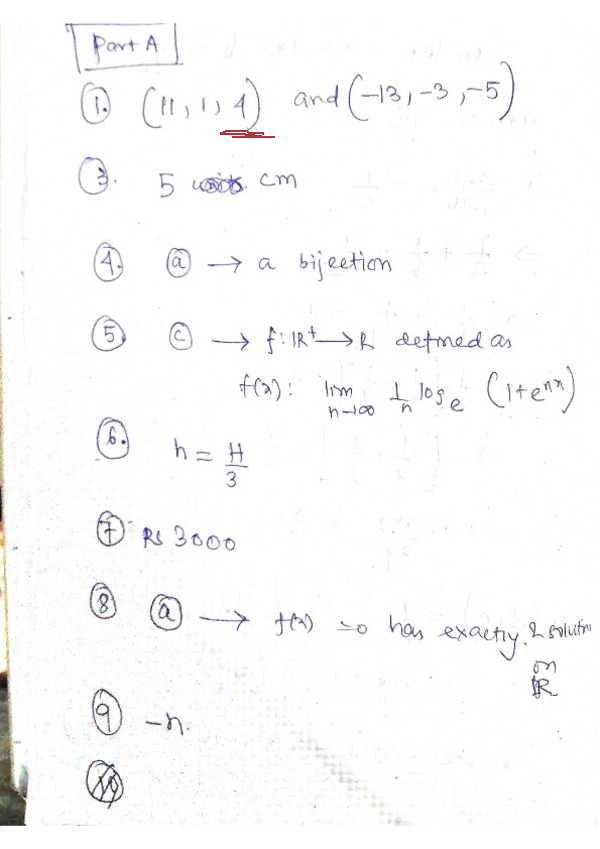 Part A
1. (11, 1, 4) and (-13, -3, -5)
3. 5 cm
4. a → a bijection
5 c → f: IR⁺ → R defined as
f(x): lim n→∞ 1/n log e (1+e^nx)
6. h = H/3
7 Rs 3000
8 a → f(x) =0 has exactly 2 solutin
on
IR
9 -n.
10